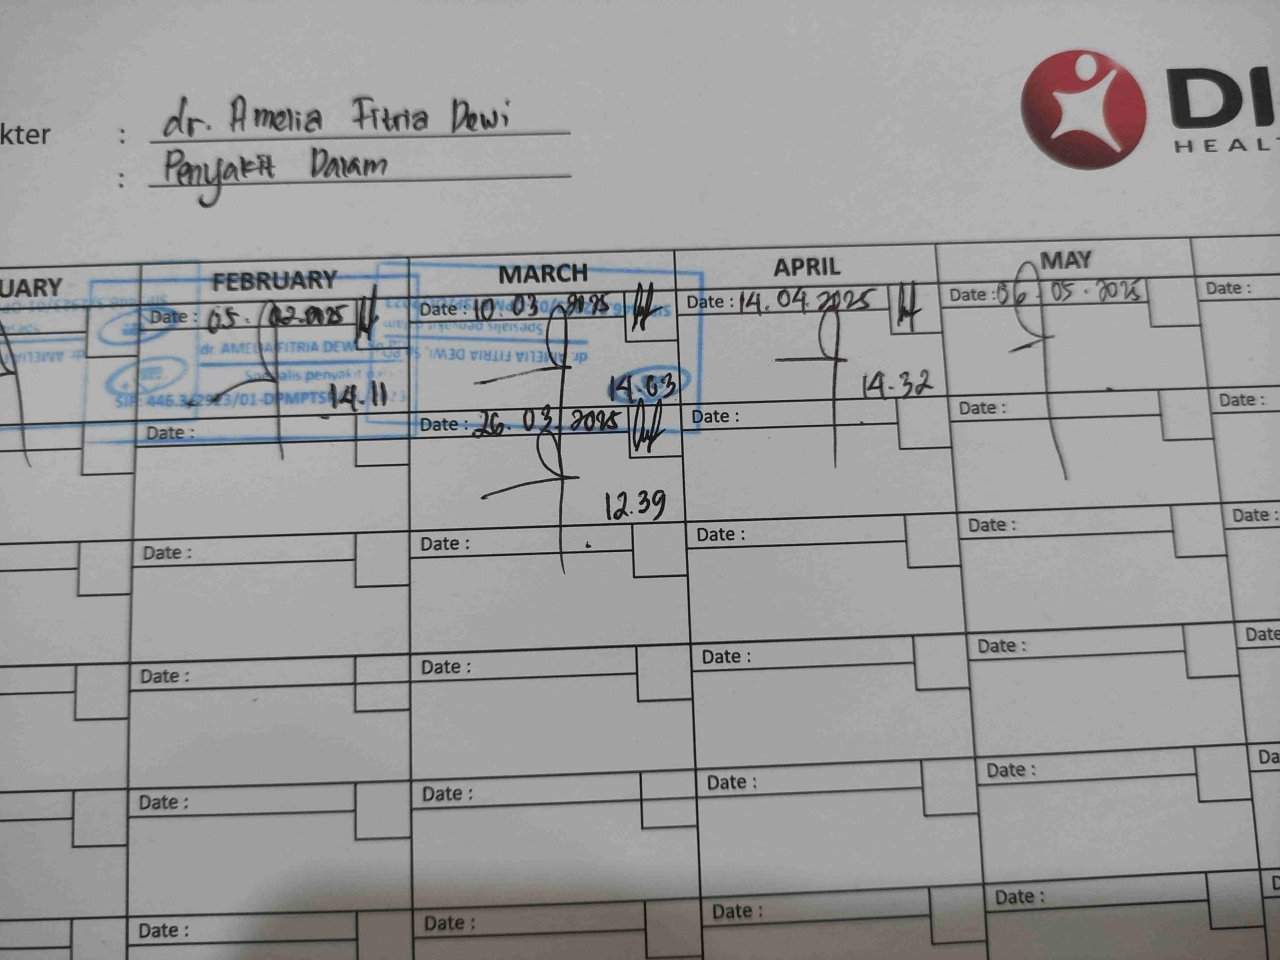 kter : dr. Amelia Fitria Dewi
: Penyakit Dalam
DI
HEAL
UARY FEBRUARY MARCH APRIL MAY
Date : 05. 02.2025 Date : 10. 03 2025 Date : 14. 04. 2025 Date : 06. 05 - 2025 Date :
dr AMELIA FITRIA DEWI
Spesialis penyakit
SIP. 446.3/2923/01-DPMPTS
Spesialis penyakit dalam
dr. AMELIA FITRIA DEWI, Sp.PD
14.11 14.03 14.32
Date : Date : 26. 03 2025 Date : Date : Date :
12.39
Date : Date : Date : Date : Date :
Date : Date : Date : Date : Date
Date : Date : Date : Date : Da
Date : Date : Date : Date : D